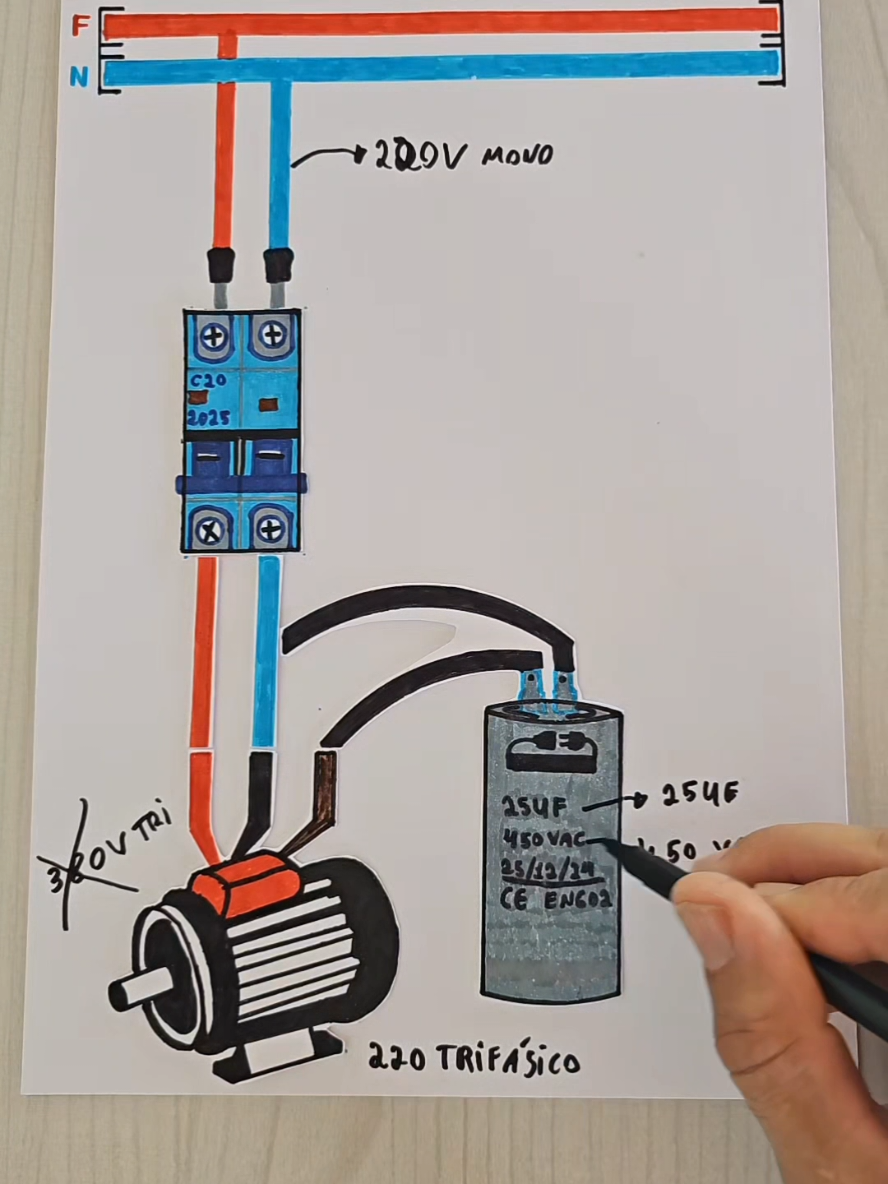 F
N
220V MONO
C20
2025
TRI
25UF
25UF
450VAC
25/12/24
CE EN602
220 TRIFÁSICO